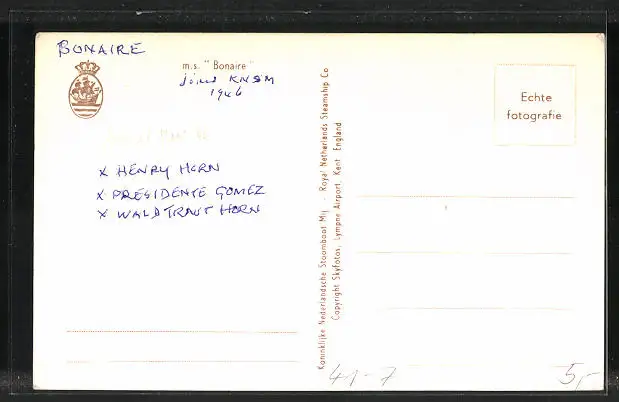 BONAIRE
m.s. "Bonaire"
joins KNSM
1946
x HENRY HORN
x PRESIDENTE GOMEZ
x WALDTRAUT HORN
Koninklijke Nederlandsche Stoomboot Mij - Royal Netherlands Steamship Co
Copyright Skyfotos, Lympne Airport, Kent England
Echte
fotografie
41-7
5,-